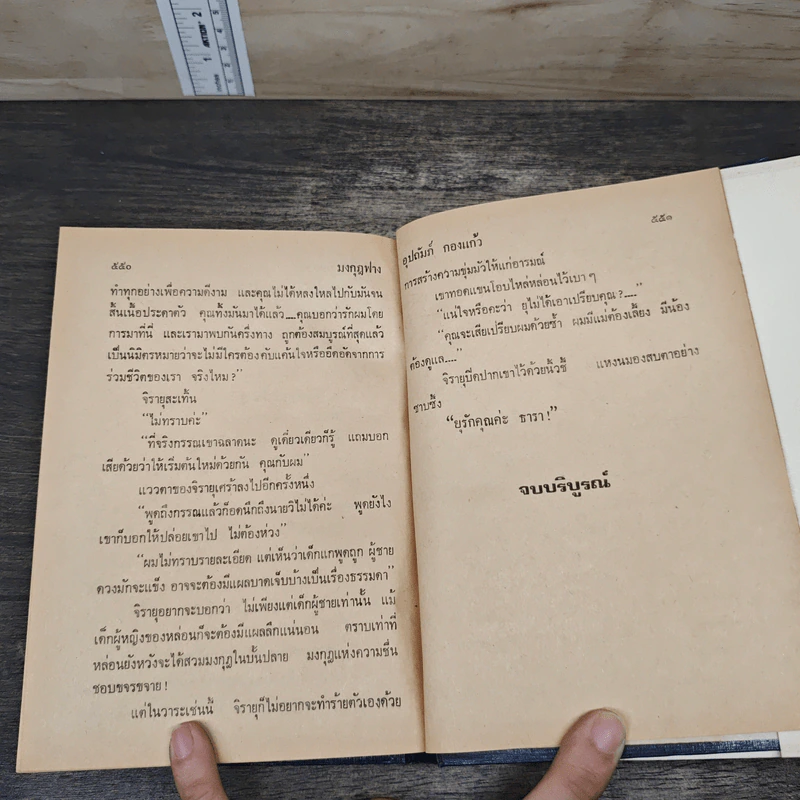 ๕๕๐ มงกุฎฟาง
ทำทุกอย่างเพื่อความดีงาม และคุณไม่ได้หลงใหลไปกับมันจน
สิ้นเนื้อประดาตัว คุณทิ้งมันมาได้แล้ว....คุณบอกว่ารักผมโดย
การมาที่นี่ และเรามาพบกันครึ่งทาง ถูกต้องสมบูรณ์ที่สุดแล้ว
เป็นนิมิตรหมายว่าจะไม่มีใครต้องคับแค้นใจหรืออึดอัดจากการ
ร่วมชีวิตของเรา จริงไหม?”
จิรายุสะเทิ้น
“ไม่ทราบค่ะ”
“ที่จริงกรรณเขาฉลาดนะ ดูเดี๋ยวเดียวก็รู้ แถมบอก
เสียด้วยว่าให้เริ่มต้นใหม่ด้วยกัน คุณกับผม”
แววตาของจิรายุเศร้าลงไปอีกครั้งหนึ่ง
“พูดถึงกรรณแล้วก็อดนึกถึงนายวิไม่ได้ค่ะ พูดยังไง
เขาก็บอกให้ปล่อยเขาไป ไม่ต้องห่วง”
“ผมไม่ทราบรายละเอียด แต่เห็นว่าเด็กแกพูดถูก ผู้ชาย
ดวงมักจะแข็ง อาจจะต้องมีแผลบาดเจ็บบ้างเป็นเรื่องธรรมดา”
จิรายุอยากจะบอกว่า ไม่เพียงแต่เด็กผู้ชายเท่านั้น แม้
เด็กผู้หญิงของหล่อนก็จะต้องมีแผลลึกแน่นอน ตราบเท่าที่
หล่อนยังหวังจะได้สวมมงกุฎในบั้นปลาย มงกุฎแห่งความชื่น
ชอบขจรขจาย!
แต่ในวาระเช่นนี้ จิรายุก็ไม่อยากจะทำร้ายตัวเองด้วย
อุปถัมภ์ กองแก้ว ๕๕๑
การสร้างความขุ่นมัวให้แก่อารมณ์
เขาทอดแขนโอบไหล่หล่อนไว้เบา ๆ
“แน่ใจหรือคะว่า ยุไม่ได้เอาเปรียบคุณ?....”
“คุณจะเสียเปรียบผมด้วยซ้ำ ผมมีแม่ต้องเลี้ยง มีน้อง
ต้องดูแล....”
จิรายุปิดปากเขาไว้ด้วยนิ้วชี้ แหงนมองสบตาอย่าง
ซาบซึ้ง
“ยุรักคุณค่ะ ธารา!”
จบบริบูรณ์
1
2